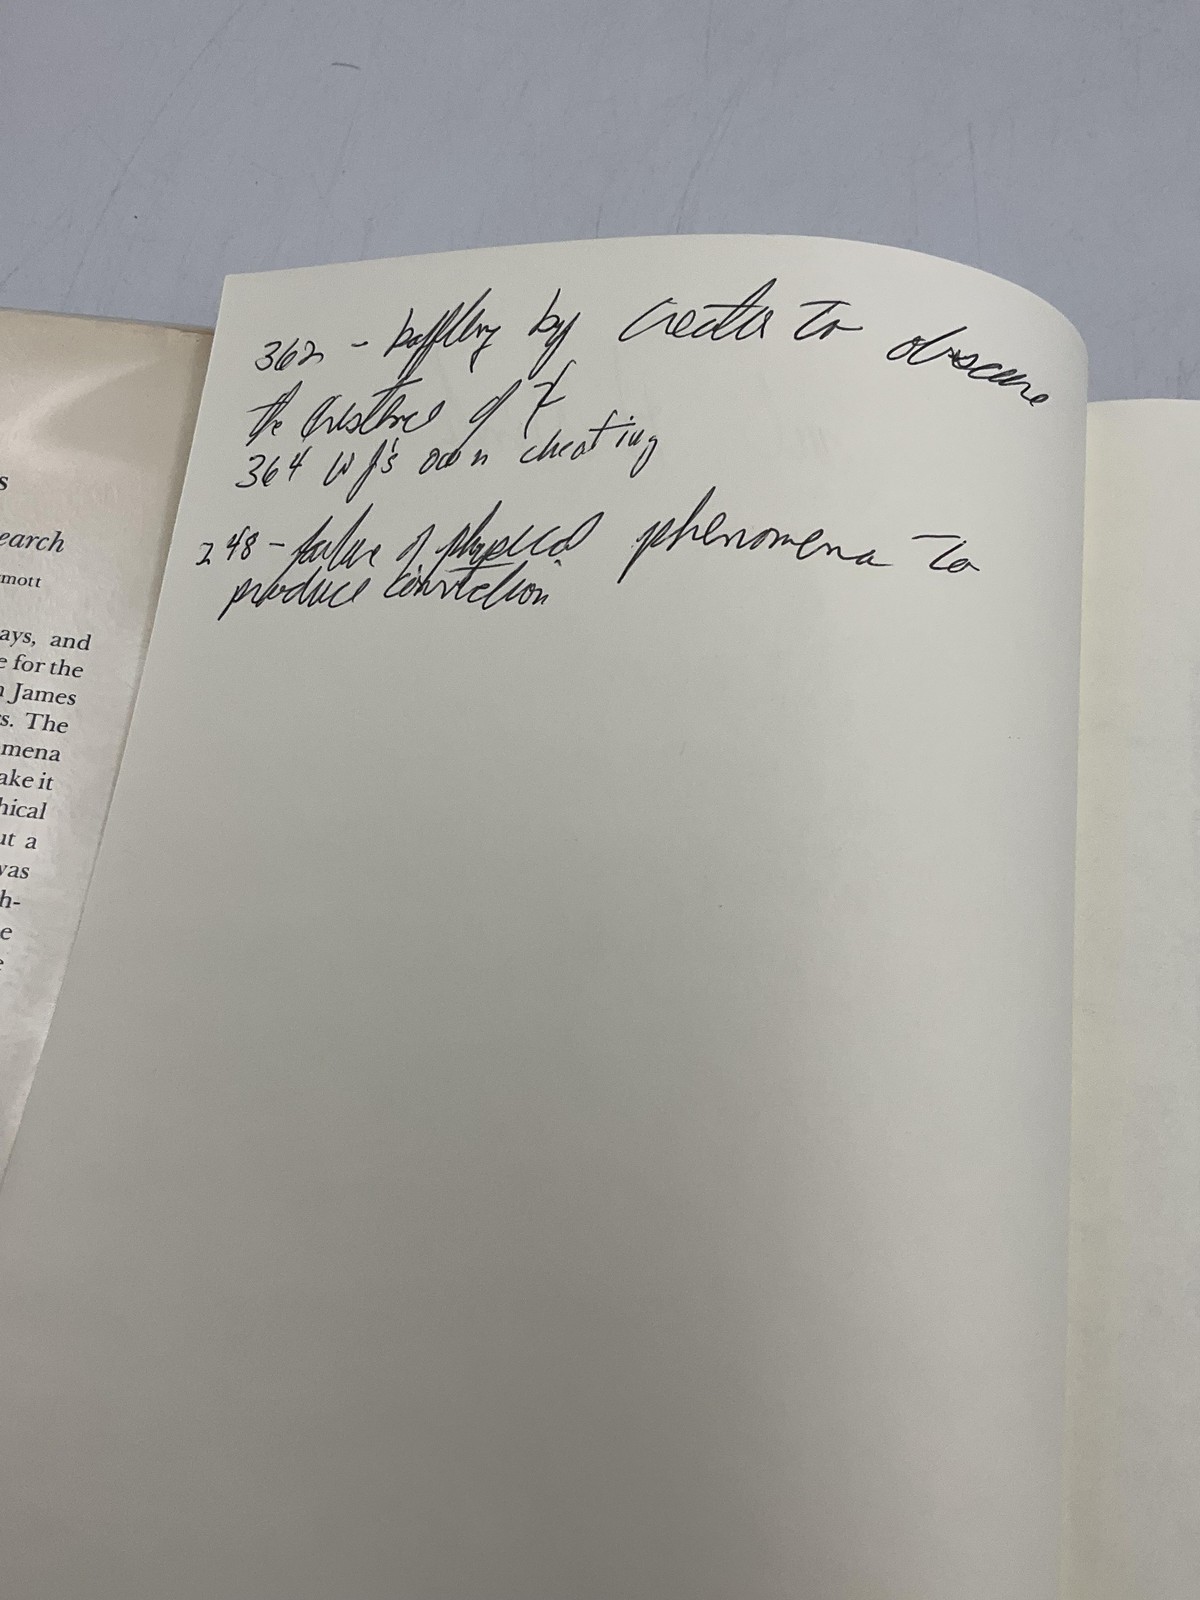 s
earch
mott
ays, and
e for the
n James
s. The
mena
ake it
hical
ut a
was
h-
e
e
362 - baffling by creator to obscure
the existence of
364 WJ's own cheating
248 - failure of physical phenomena to
produce conviction